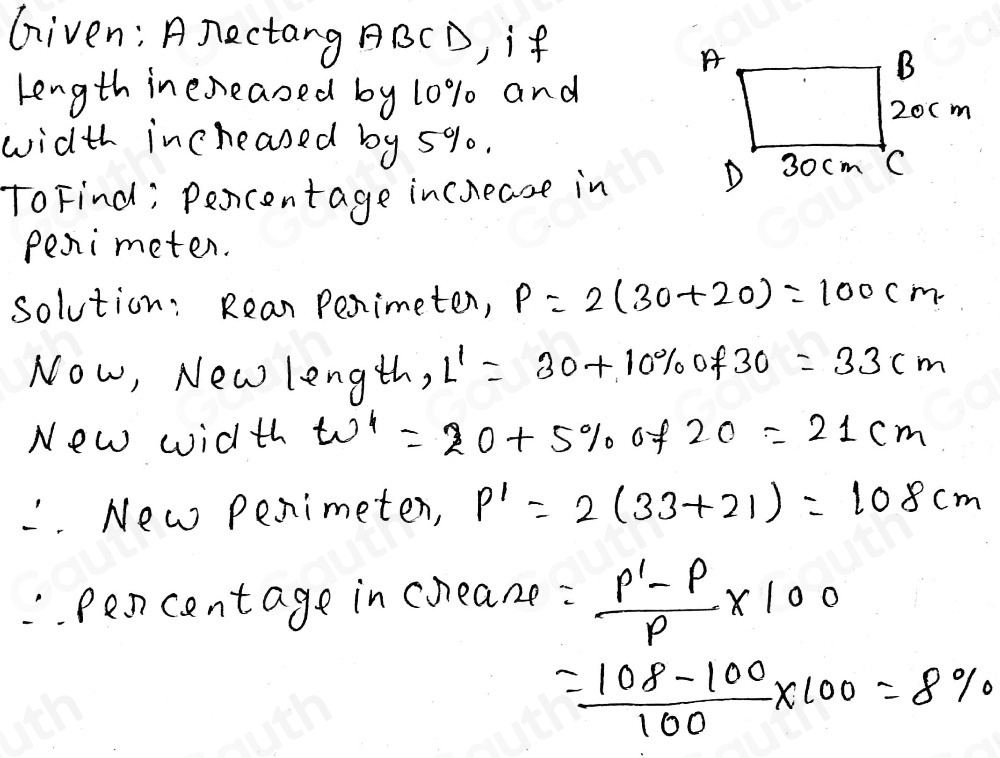 Given: A rectang ABCD, if
length increased by 10% and
width increased by 5%.
To Find: Percentage increase in
perimeter.
A
B
20cm
D
30cm
C
Solution: Rear Perimeter, P = 2(30+20) = 100cm
Now, New length, L' = 30 + 10% of 30 = 33cm
New width w' = 20 + 5% of 20 = 21cm
∴ New Perimeter, P' = 2(33+21) = 108cm
∴ Percentage increase = P'-P / P × 100
= 108-100 / 100 × 100 = 8%